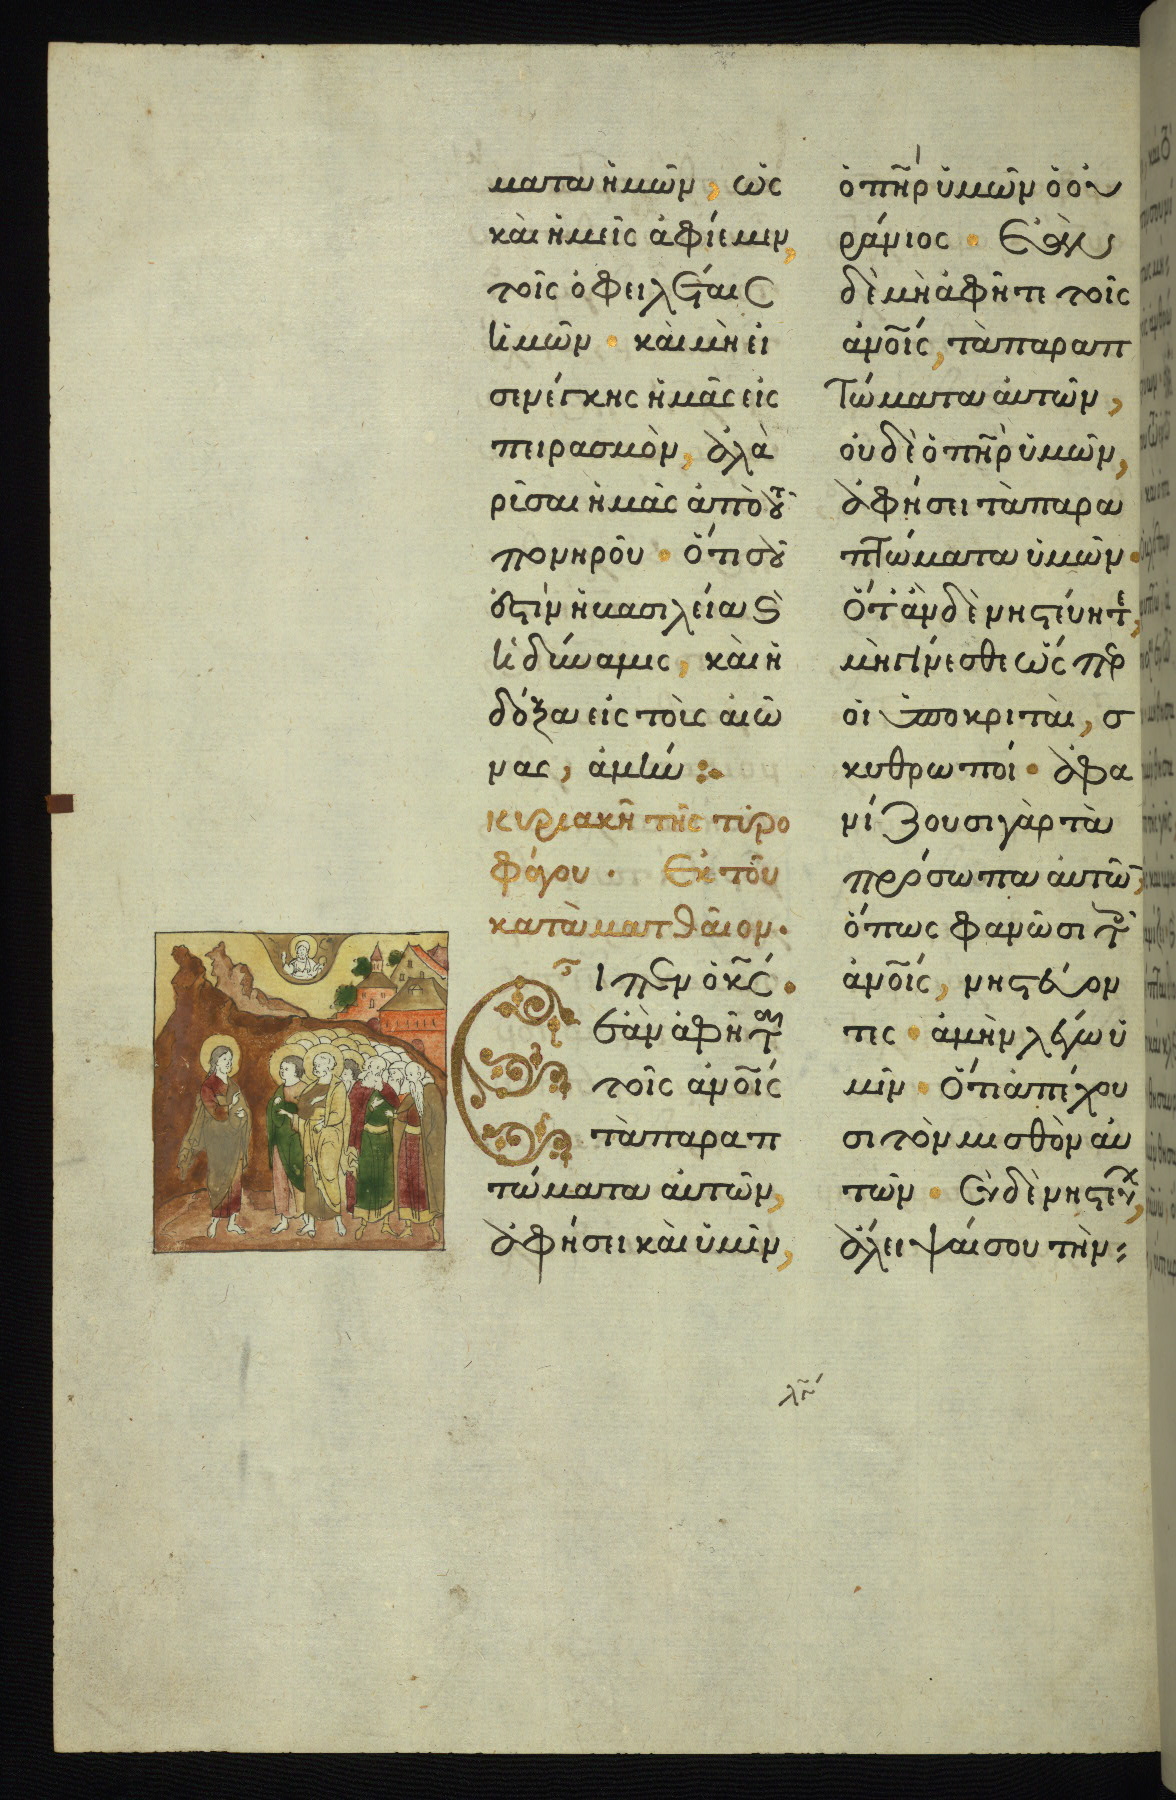 ματα ἡμῶν, ὡς
καὶ ἡμεῖς ἀφίεμεν,
τοῖς ὀφειλέταις
ἡμῶν · καὶ μὴ εἰ
σενέγκης ἡμᾶς εἰς
πειρασμὸν, ἀλλὰ
ρῖσαι ἡμᾶς ἀπὸ τοῦ
πονηροῦ · ὅτι σοῦ
ἐστίν ἡ βασιλεία καὶ
ἡ δύναμις, καὶ ἡ
δόξα εἰς τοὺς αἰῶ
νας, ἀμήν :·
κυριακῆ τῆς τυρο
φάγου · Ἐκ τοῦ
κατὰ ματθαῖον ·
Εἶπεν ὁ κ̅ς̅ ·
ἐὰν ἀφῆτε
τοῖς ἀν̅οις
τὰ παραπ
τώματα αὐτῶν,
ἀφήσει καὶ ὑμῖν,
ὁ π̅ηρ ὑμῶν ὁ οὐ
ράνιος · Ἐὰν
δὲ μὴ ἀφῆτε τοῖς
ἀν̅οις, τὰ παραπ
τώματα αὐτῶν,
οὐδὲ ὁ π̅ηρ ὑμῶν,
ἀφήσει τὰ παρα
πτώματα ὑμῶν ·
Ὅταν δὲ νηστεύητε,
μὴ γίνεσθε ὥσπερ
οἱ ὑποκριταὶ, σ
κυθρωποί · ἀφα
νίζουσι γὰρ τὰ
πρόσωπα αὐτῶν,
ὅπως φανῶσι τοῖς
ἀν̅οις, νηστεύον
τες · ἀμὴν λέγω ὑ
μῖν · Ὅτι ἀπέχου
σι τὸν μισθὸν αὐ
τῶν · Σὺ δὲ νηστεύων,
ἄλειψαί σου τὴν